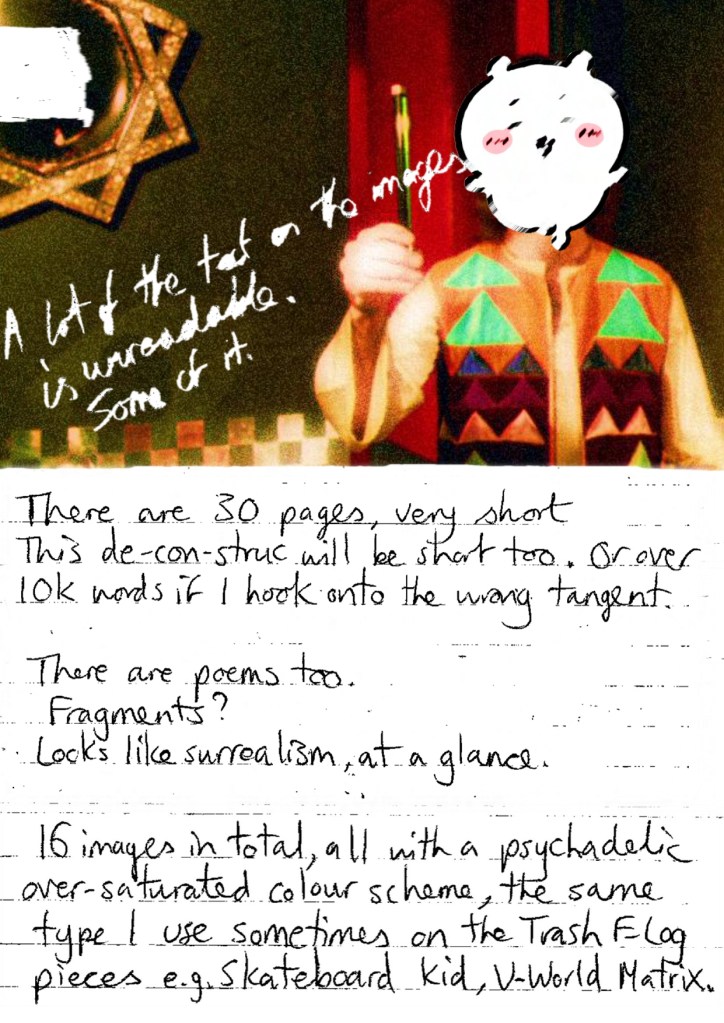 A lot of the text on the images
is unreadable.
Some of it.
There are 30 pages, very short
This de-con-struc will be short too. Or over
10k words if I hook onto the wrong tangent.
There are poems too.
Fragments?
Looks like surrealism, at a glance.
16 images in total, all with a psychadelic
over-saturated colour scheme, the same
type I use sometimes on the Trash Flog
pieces e.g. Skateboard kid, V-World Matrix.